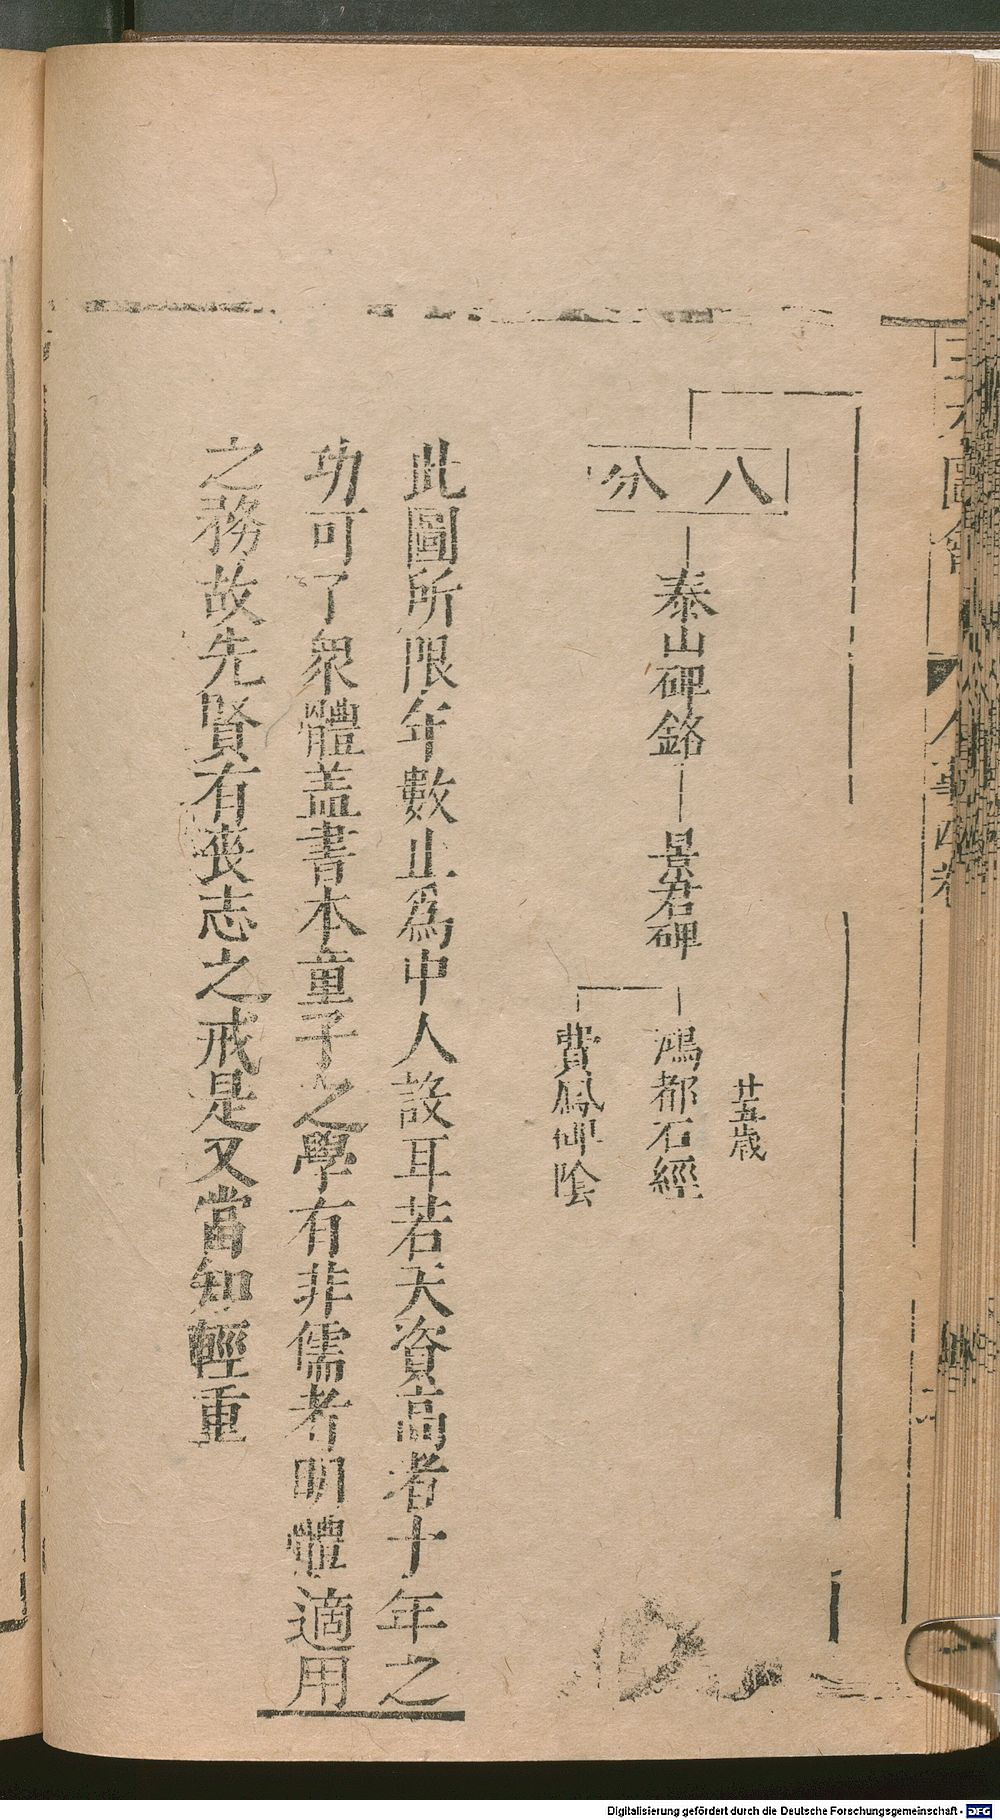 三才圖會
人事四卷
八分
泰山碑銘
景君碑
廿五歲
鴻都石經
費鳳碑陰
此圖所限年數止為中人設耳若天資高者十年之
功可了衆體盖書本童子之學有非儒者明體適用
之務故先賢有喪志之戒是又當知輕重
Digitalisierung gefördert durch die Deutsche Forschungsgemeinschaft - DFG